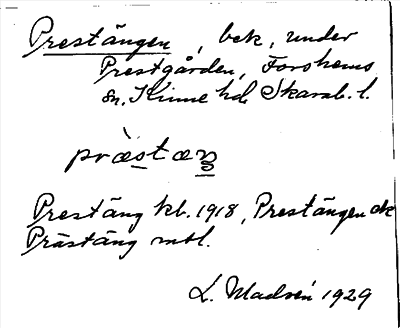 Prestängen, bek, under
Prestgården, Forshems
sn, Kinne hd Skarab. l.
præ̀stæŋ
Prestäng kb. 1918, Prestängen ek
Prästäng mtl.
L. Madsén 1929